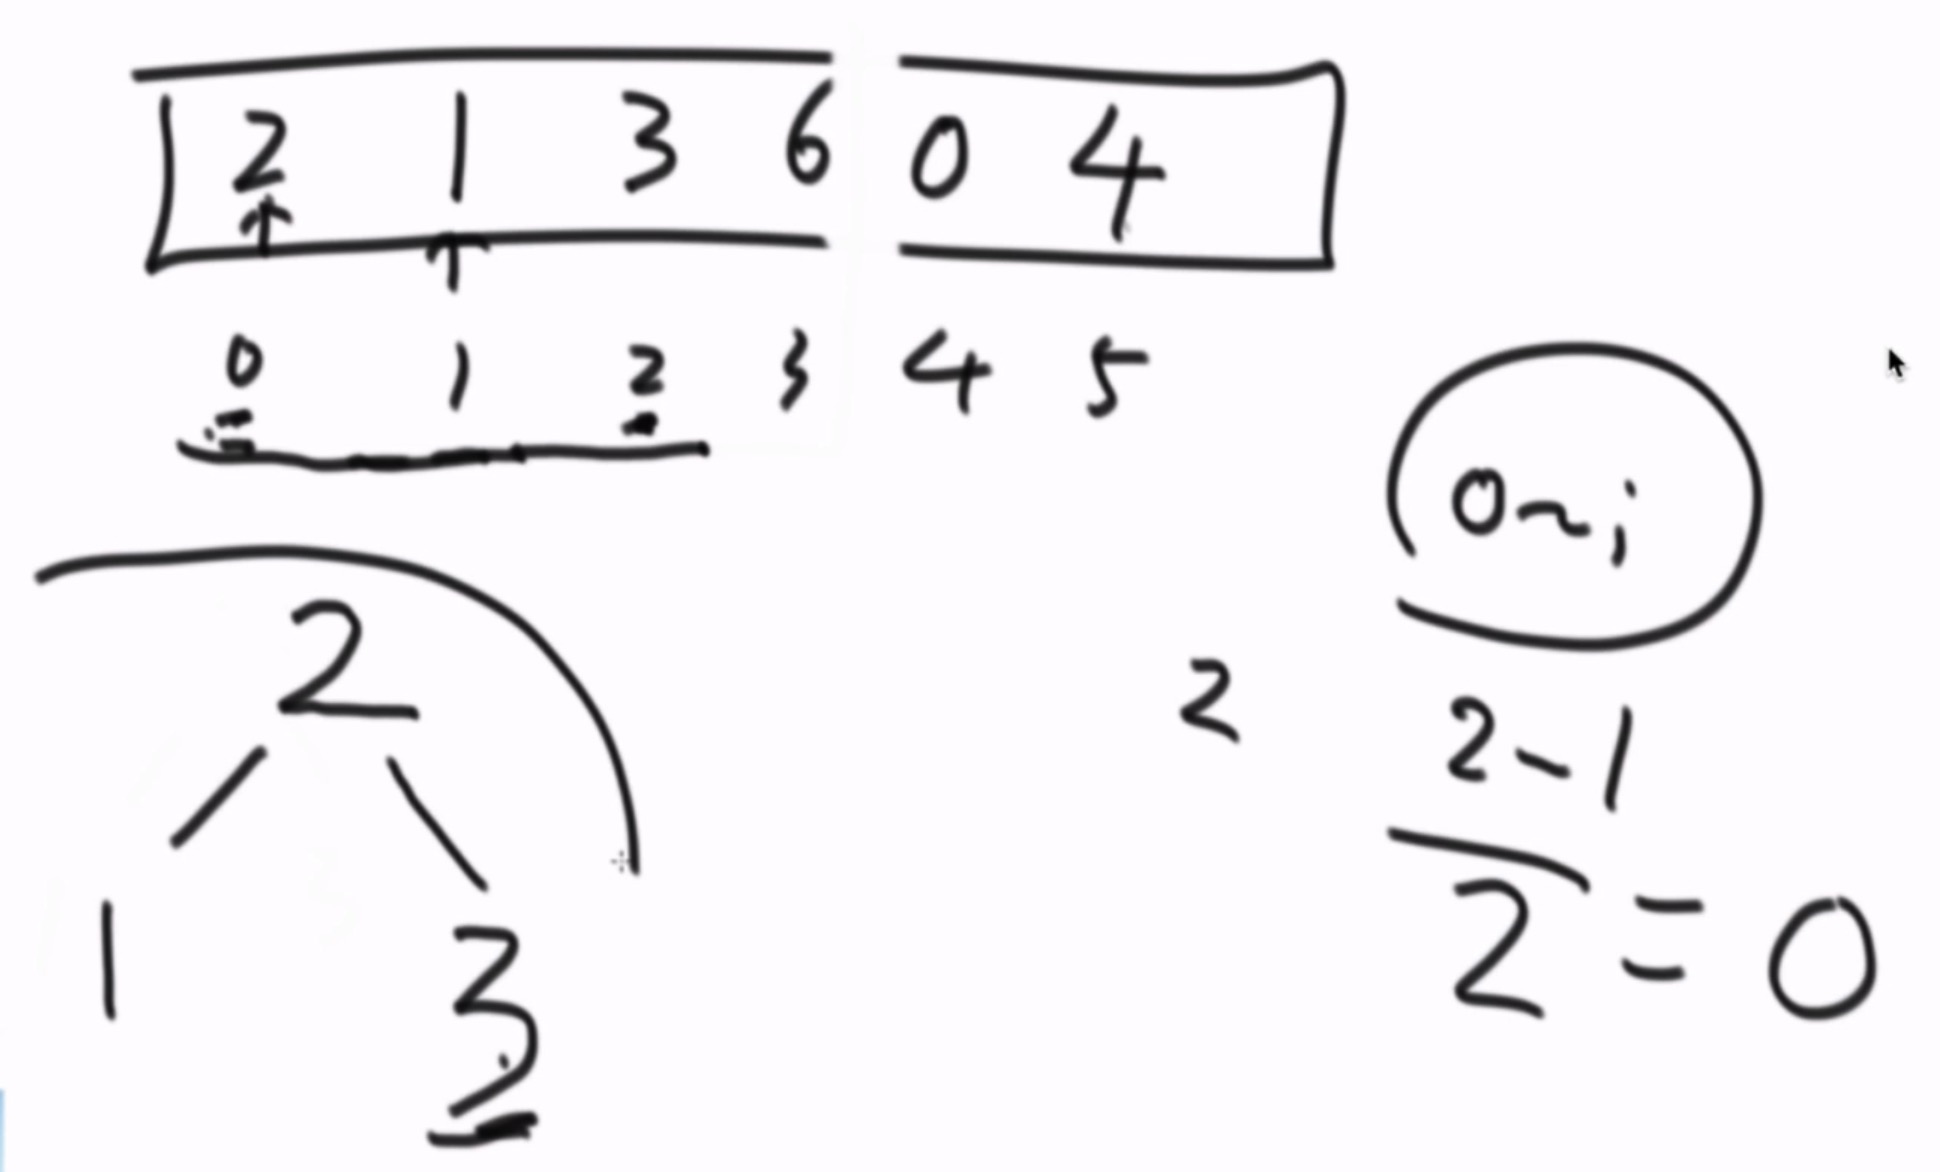 2 1 3 6 0 4
0 1 2 3 4 5
0~i
2
2 2-1
1 3 2 = 0